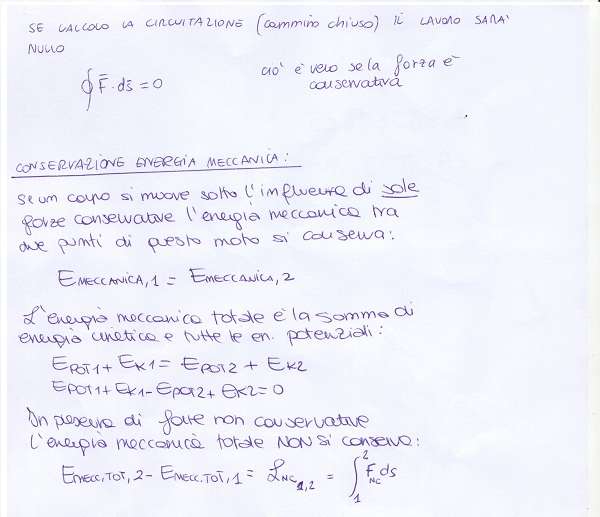 SE CALCOLO LA CIRCUITAZIONE (cammino chiuso) IL LAVORO SARA'
NULLO
∮ F̄ · ds̄ = 0
ciò è vero se la forza è
conservativa
CONSERVAZIONE ENERGIA MECCANICA:
Se un corpo si muove sotto l'influenza di sole
forze conservative l'energia meccanica tra
due punti di questo moto si conserva:
E MECCANICA,1 = E MECCANICA,2
L'energia meccanica totale è la somma di
energia cinetica e tutte le en. potenziali:
E POT1 + E K1 = E POT2 + E K2
E POT1 + E K1 - E POT2 + E K2 = 0
In presenza di forze non conservative
l'energia meccanica totale NON si conserva:
E MECC,TOT,2 - E MECC,TOT,1 = L NC 1,2 = ∫₁² F̄ NC ds